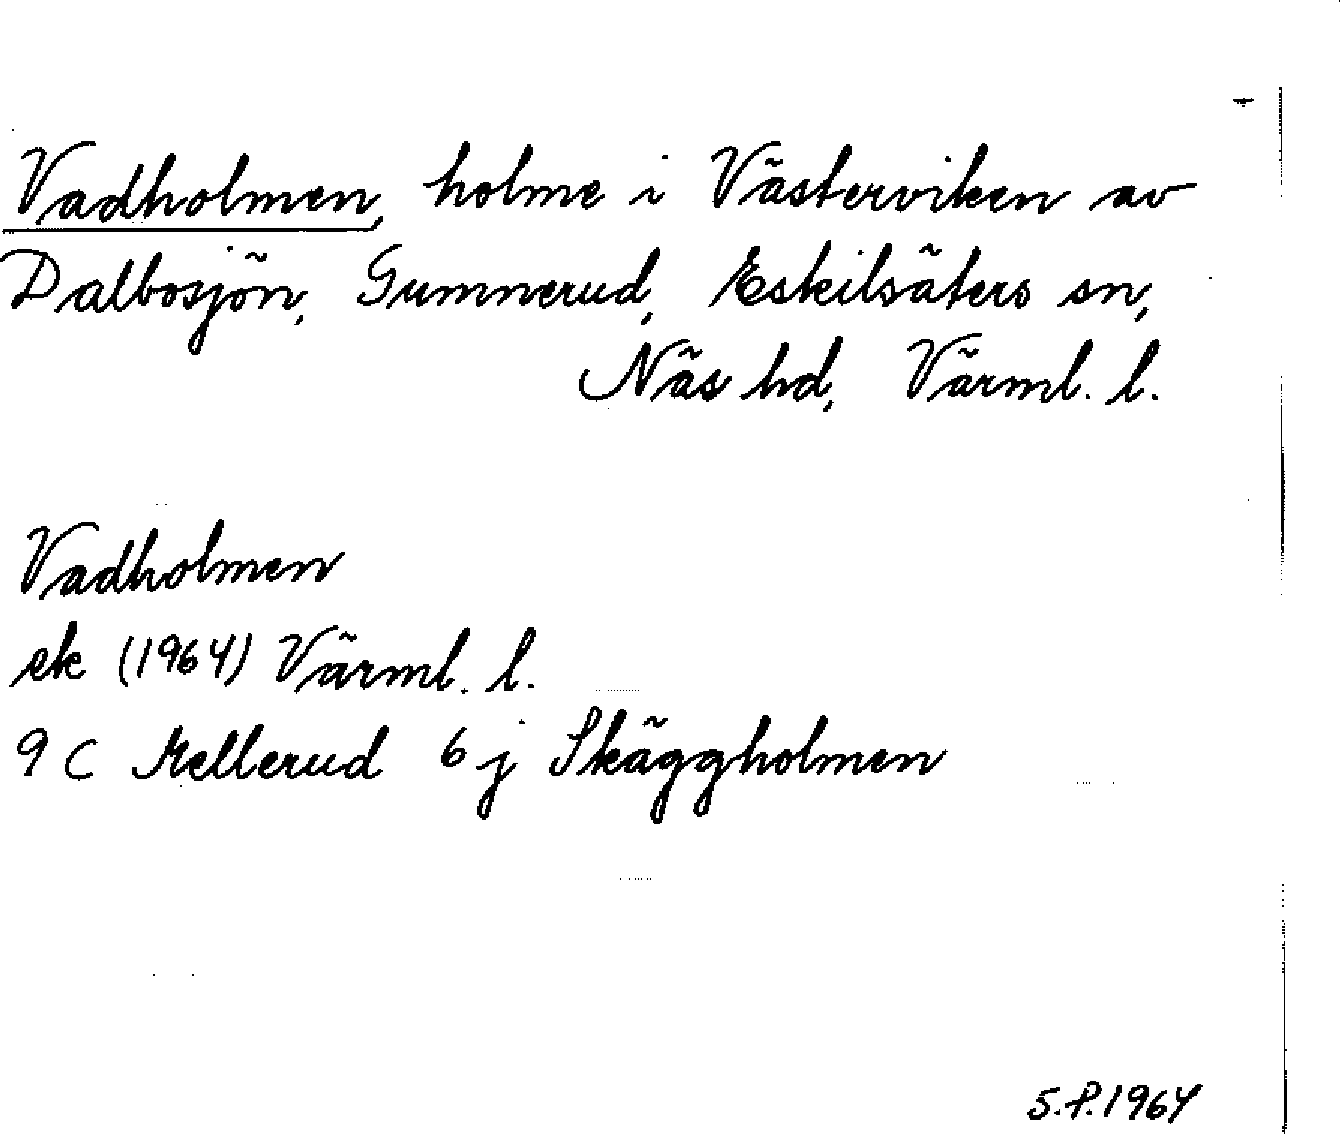 Vadholmen, holme i Västerviken av
Dalbosjön, Gumnerud, Eskilsäters sn,
Näs hd, Värml. l.
Vadholmen
ek (1964) Värml. l.
9 C Mellerud 6 j Skäggholmen
S.P. 1964